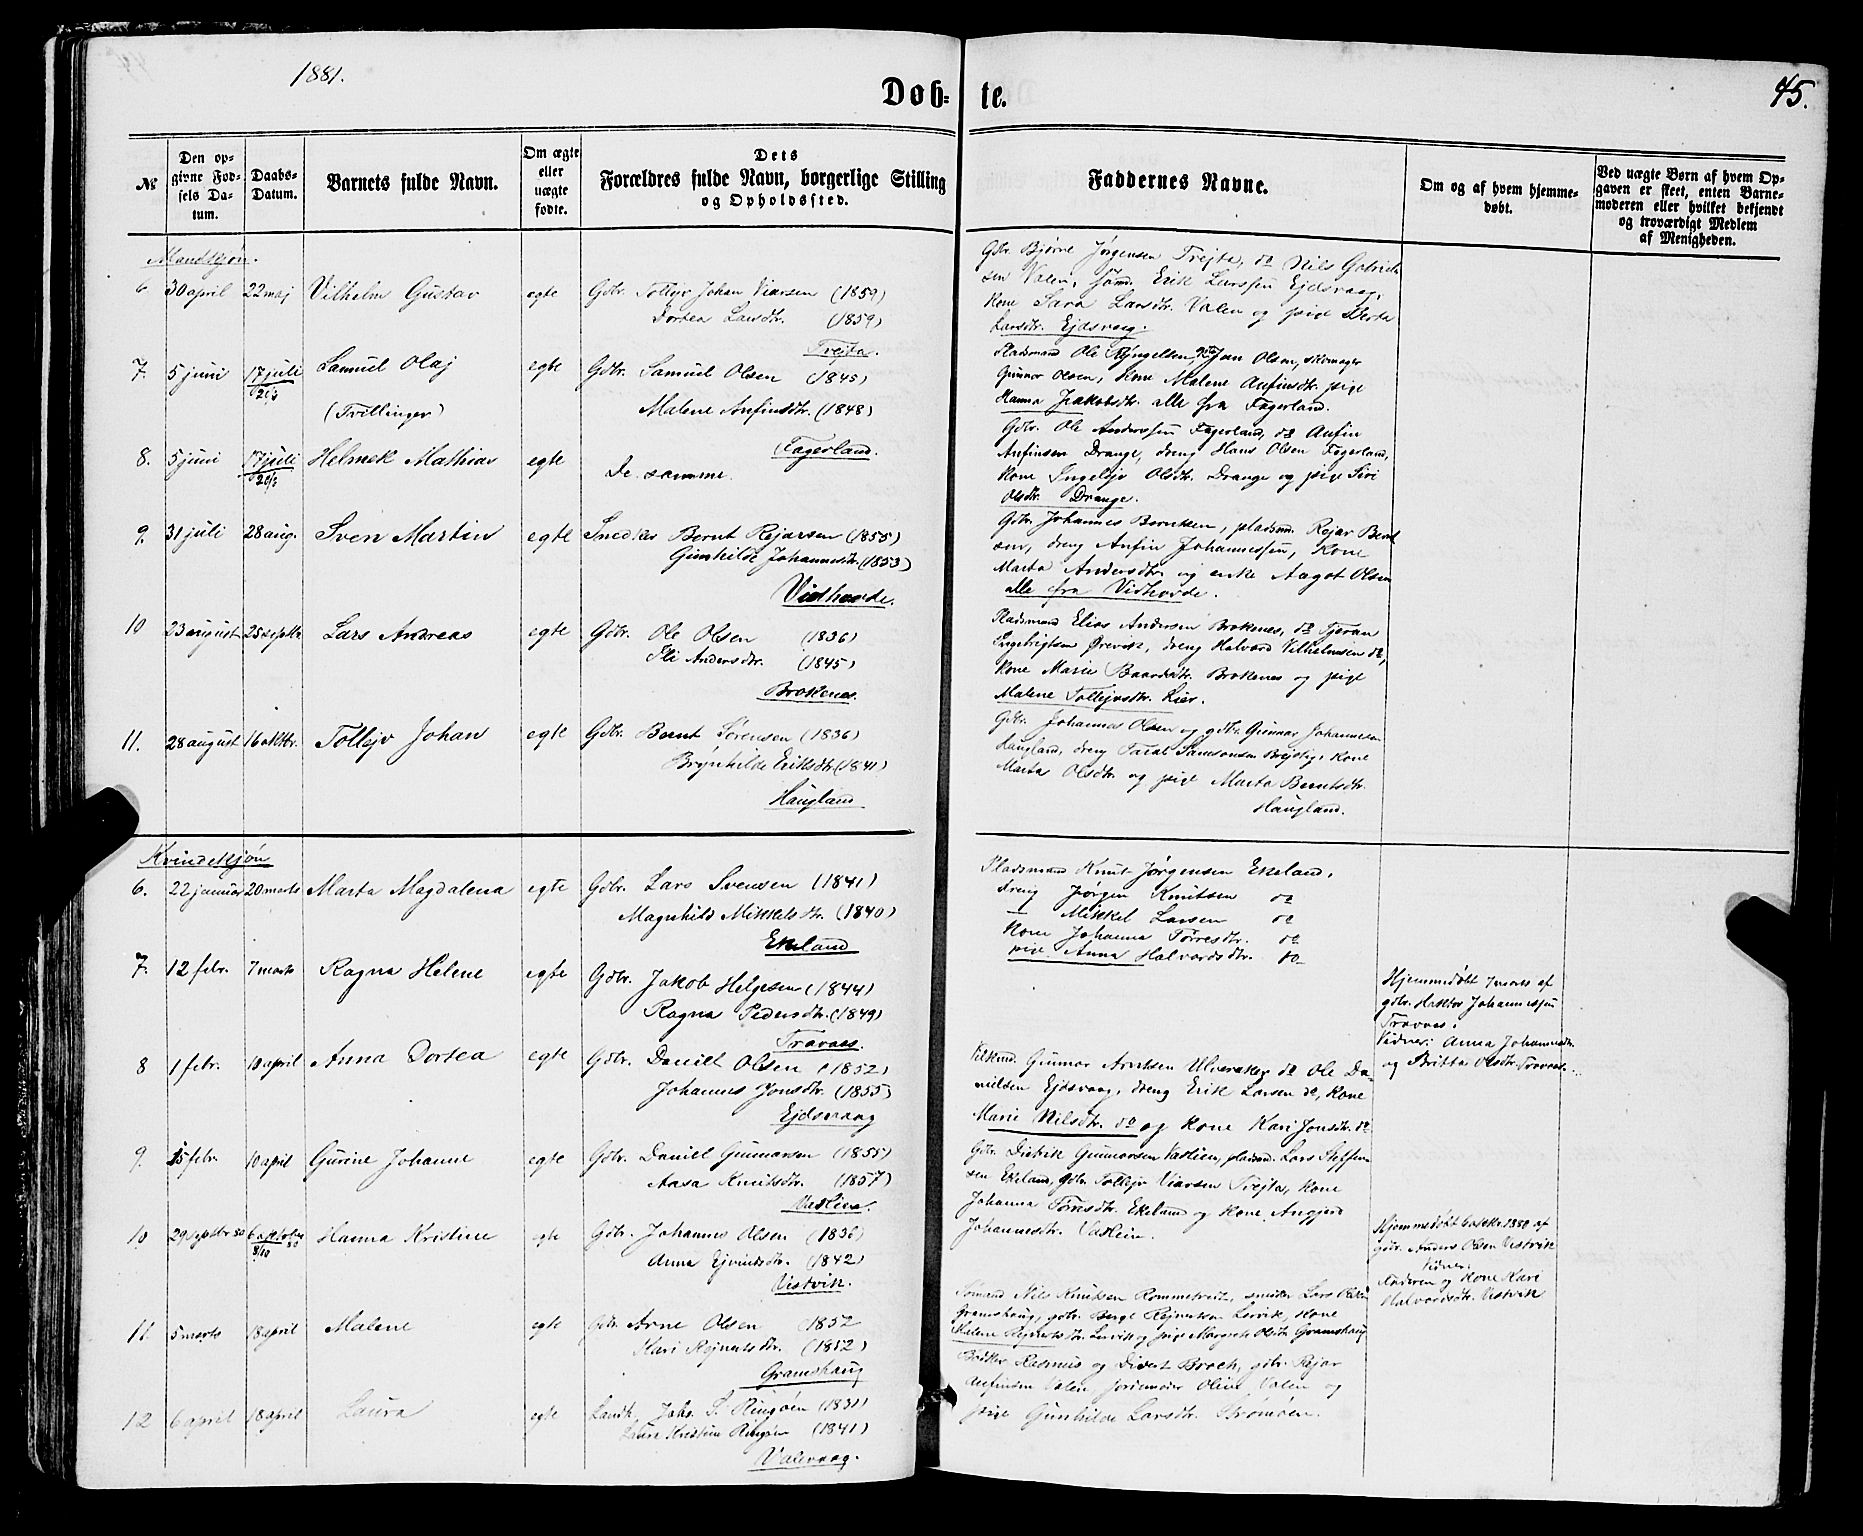 1881.
Døb- te.
45.
№
Den opgivne Fødsels Datum.
Daabs-Datum.
Barnets fulde Navn.
Om ægte eller uægte fødte.
Dets Forældres fulde Navn, borgerlige Stilling og Opholdssted.
Faddernes Navne.
Om og af hvem hjemmedøbt.
Ved uægte Børn af hvem Opgaven er skeet, enten Barnemoderen eller hvilket bekjendt og troværdigt Medlem af Menigheden.
Mandkjøn.
6 30 april 22 maj Vilhelm Gustav egte Gdbr. Tollejv Johan Viarsen (1859)
Dortea Larsdtr. (1859)
Trejta.
Gdbr. Bjørne Jørgensen Trejta, do Nils Gabriel
sen Valen, sømd. Erik Larssen Ejdsvaag,
kone Sara Larsdtr. Valen og pige Berta
Larsdtr. Ejdsvaag.
7. 5 juni 17 juli Samuel Olaj egte Gdbr. Samuel Olsen (1845)
21/8
(Tvillinger) Malene Anfinsdtr. (1848)
Fagerland.
Pladsmand Ole Jon Olsen, skomager
Gunnar Olsen, kone Malene Anfinsdtr. pige
Hanna Jakobsdtr. alle fra Fagerland.
8. 5 juni 17 juli Helmek Mathias egte De samme.
21/8
Gdbr. Ole Anderssen Fagerland, do Anfin
Anfinsen Drange, dreng Hans Olsen Fagerland,
kone Ingelejv Olsdtr. Drange og pige Siri
Olsdtr. Drange.
9. 31 juli 28 aug. Sven Martin egte Snedker Bernt Rejarsen (1855)
Gunhilde Johannesdtr. (1853)
Vidhovde.
Gdbr. Johannes Berntsen, pladsmd. Rejar Bernt
sen, dreng Anfin Johannessen, kone
Marta Andersdtr. og enke Aagot Olsen
alle fra Vidhovde.
10 23 august 25 septbr. Lars Andreas egte Gdbr. Ole Olsen (1836)
Eli Andersdtr. (1845)
Brokenes.
Pladsmand Elias Andersen Brokenes, do Tjeran
Ingebrigtsen Ørevik, dreng Halvard Vilhelmsen do,
kone Marie Baardsdtr. Brokenes og pige
Malene Tollejvsdtr. Lier.
11. 28 august 16 oktbr. Tollejv Johan egte Gdbr. Bernt Sørensen (1836)
Brynhilde Eriksdtr. (1841)
Haugland
Gdbr. Johannes Olsen og gdbr. Gunnar Johannesen
Haugland, dreng Taral Samsonsen kone
Marta Olsdtr. og pige Marta Berntsdtr.
Haugland.
Kvindekjøn
6. 22 januar 20 marts Marta Magdalena egte Gdbr. Lars Svensen (1841)
Magnhild Mikkelsdtr. (1840)
Ekeland
Pladsmand Knut Jørgensen Ekeland,
dreng Jørgen Knutsen do
— Mikkel Larsen do
kone Johanna Torresdtr. do
pige Anna Halvordsdtr. do
7. 12 febr. 7 marts Ragna Helene egte Gdbr. Jakob Helgesen (1844)
Ragna Pedersdtr. (1849)
Travaas.
Hjemmedøbt 7 marts af
gdbr. Haktor Johannessen
Travaas.
Vidner: Anna Johannesdtr.
og Britta Olsdtr. Travaas.
8 1 febr. 10 april Anna Dortea egte Gdbr. Daniel Olsen (1852)
Johanne Jonsdtr. (1855)
Ejdsvaag
Gunnar Arntsen Ulveraker do Ole Da-
nielsen Ejdsvaag, dreng Erik Larsen do, kone
Marie Nilsdtr. do og kone Kari Jonsdtr. do
9. 15 febr. 10 april Gurine Johanne egte Gdbr. Daniel Gunnarsen (1855)
Aasa Knutsdtr. (1857)
Vadlien.
Gdbr. Didrik Gunnarsen Vadlien, pladsmd. Lars Steffen
sen Ekeland, gdbr. Tollejv Viarsen Trejta, kone
Johanna Torresdtr. Ekeland og kone Angjerd
Johannesdtr. Vadlien.
10 29 septbr 80 6 oktober 80 Hanna Kristine egte Gdbr. Johannes Olsen (1836)
8/10
Anna Ejvindsdtr. (1842)
Vestvik.
Hjemmedøbt 6 oktbr. 1880 af
gdbr. Anders Olsen Vestvik
Vidner:
Faderen og kone Kari
Halvordsdtr. Vestvik
11 5 marts 18 april Malene egte Gdbr. Arne Olsen 1852
Kari Rejnertsdtr. (1852)
Gramshaug
Sømand Nils Knutsen Rommetveit, smeden Lars
Gramshaug, gdbr. Børge Rejnertsen Lervik, kone
Malene Rejnertsdtr. Lervik og pige Margrete Olsdtr. Gramshaug
12 6 april 18 april Laura egte Landh. Johs. S. Ringøen (1831)
Laura Kristine Ringøen (1841)
Valevaag.
Bødker Rasmus og Divert Broch, gdbr. Rejar
Anfinsen Valen, jordmoder Oline Valen og
pige Gunhilde Larsdtr. Strømøen.